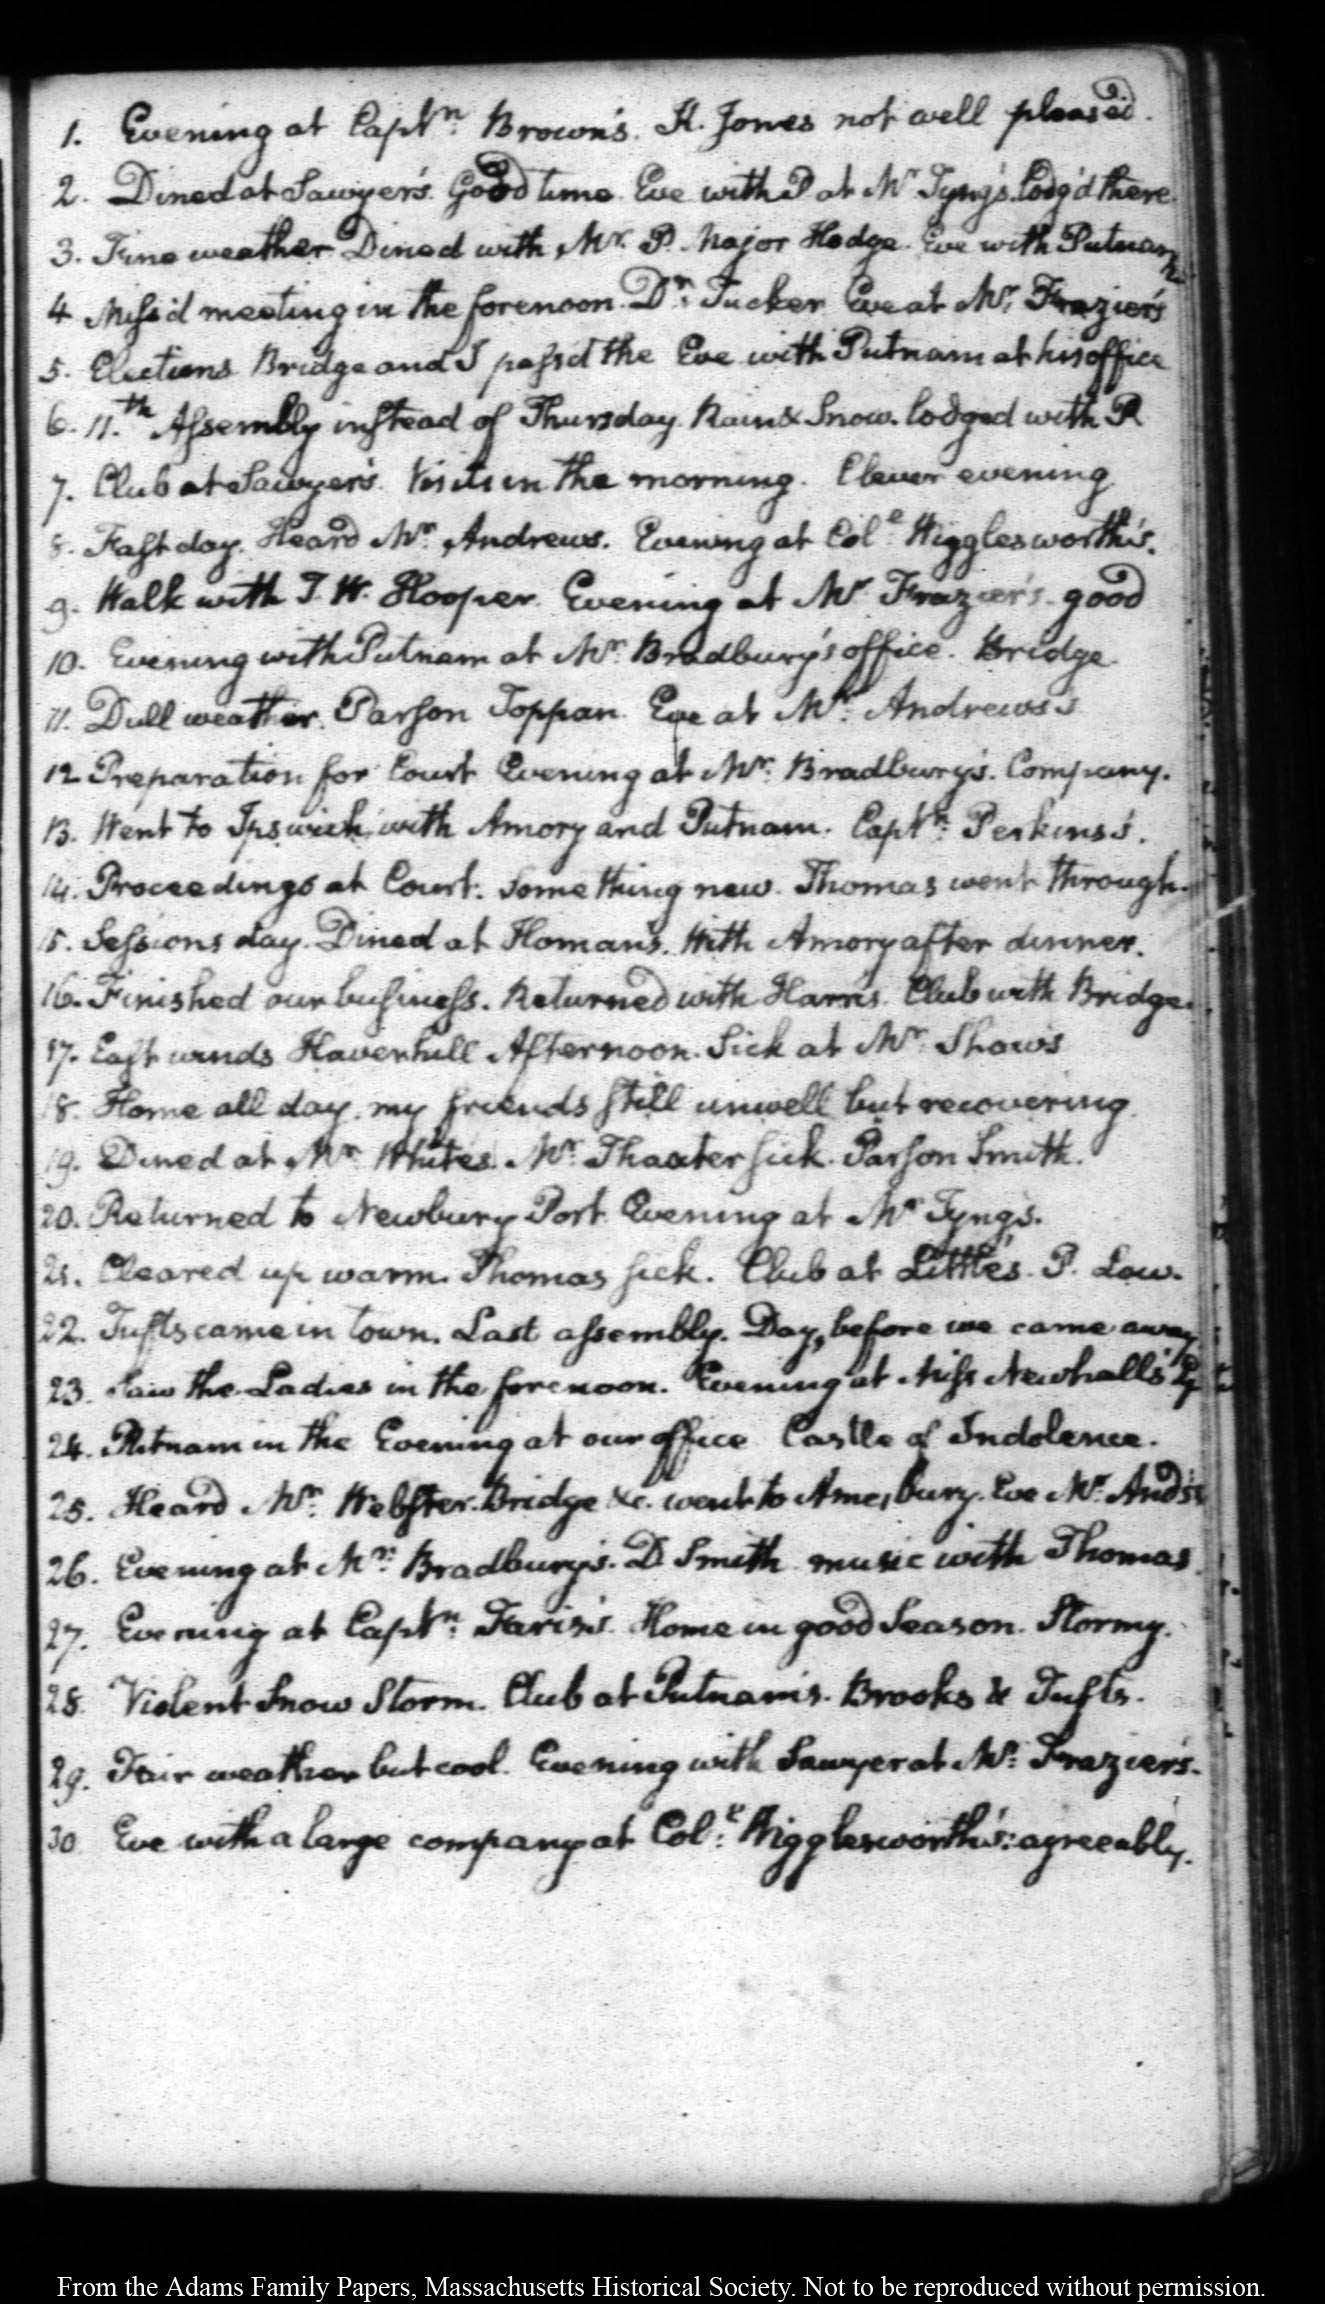 1. Evening at Captn: Brown's. H. Jones not well pleased.
2. Dined at Sawyer's. Good time. Eve with P at Mr Tyng's. lodg'd there.
3. Fine weather Dined with Mr. P. Major Hodge. Eve with Putnam
4 Miss'd meeting in the forenoon. Dr: Tucker Eve at Mr: Frazier's
5. Elections Bridge and I pass'd the Eve with Putnam at his office
6. 11.th Assembly instead of Thursday. Rain & Snow. lodged with P.
7. Club at Sawyer's. Visits in the morning. Clever evening
8. Fast day. Heard Mr. Andrews. Evening at Col:e Wigglesworth's.
9. Walk with J. W. Hooper. Evening at Mr Frazier's. good
10. Evening with Putnam at Mr: Bradbury's office. Bridge.
11. Dull weather. Parson Toppan. Eve at Mr: Andrews's
12 Preparation for Court Evening at Mr: Bradbury's. Company.
13. Went to Ipswich, with Amory and Putnam. Captn: Perkins's.
14. Proceedings at Court: Something new. Thomas went through.
15. Sessions day. Dined at Homan's. With Amory after dinner.
16. Finished our business. Returned with Harris. Club with Bridge.
17. East winds Haverhill Afternoon. Sick at Mr Shaw's
18. Home all day. my friends still unwell but recovering.
19. Dined at Mr. White's. Mr: Thaxter sick. Parson Smith.
20. Returned to Newbury Port Evening at Mr Tyng's.
21. Cleared up warm. Thomas sick. Club at Little's. P. Low.
22. Tufts came in town. Last assembly. Day, before we came away
23. Saw the Ladies in the forenoon. Evening at Miss Newhall's
24. Putnam in the Evening at our office Castle of Indolence.
25. Heard Mr. Webster. Bridge &c. went to Amesbury. Eve Mr. And's
26. Evening at Mr: Bradbury's. D Smith music with Thomas.
27. Evening at Captn: Faris's. Home in good Season. Stormy.
28. Violent Snow Storm. Club at Putnam's. Brooks & Tufts.
29. Fair weather but cool. Evening with Sawyer at Mr: Frazier's.
30 Eve with a large company at Col:e Wigglesworth's: agreeably.
From the Adams Family Papers, Massachusetts Historical Society. Not to be reproduced without permission.